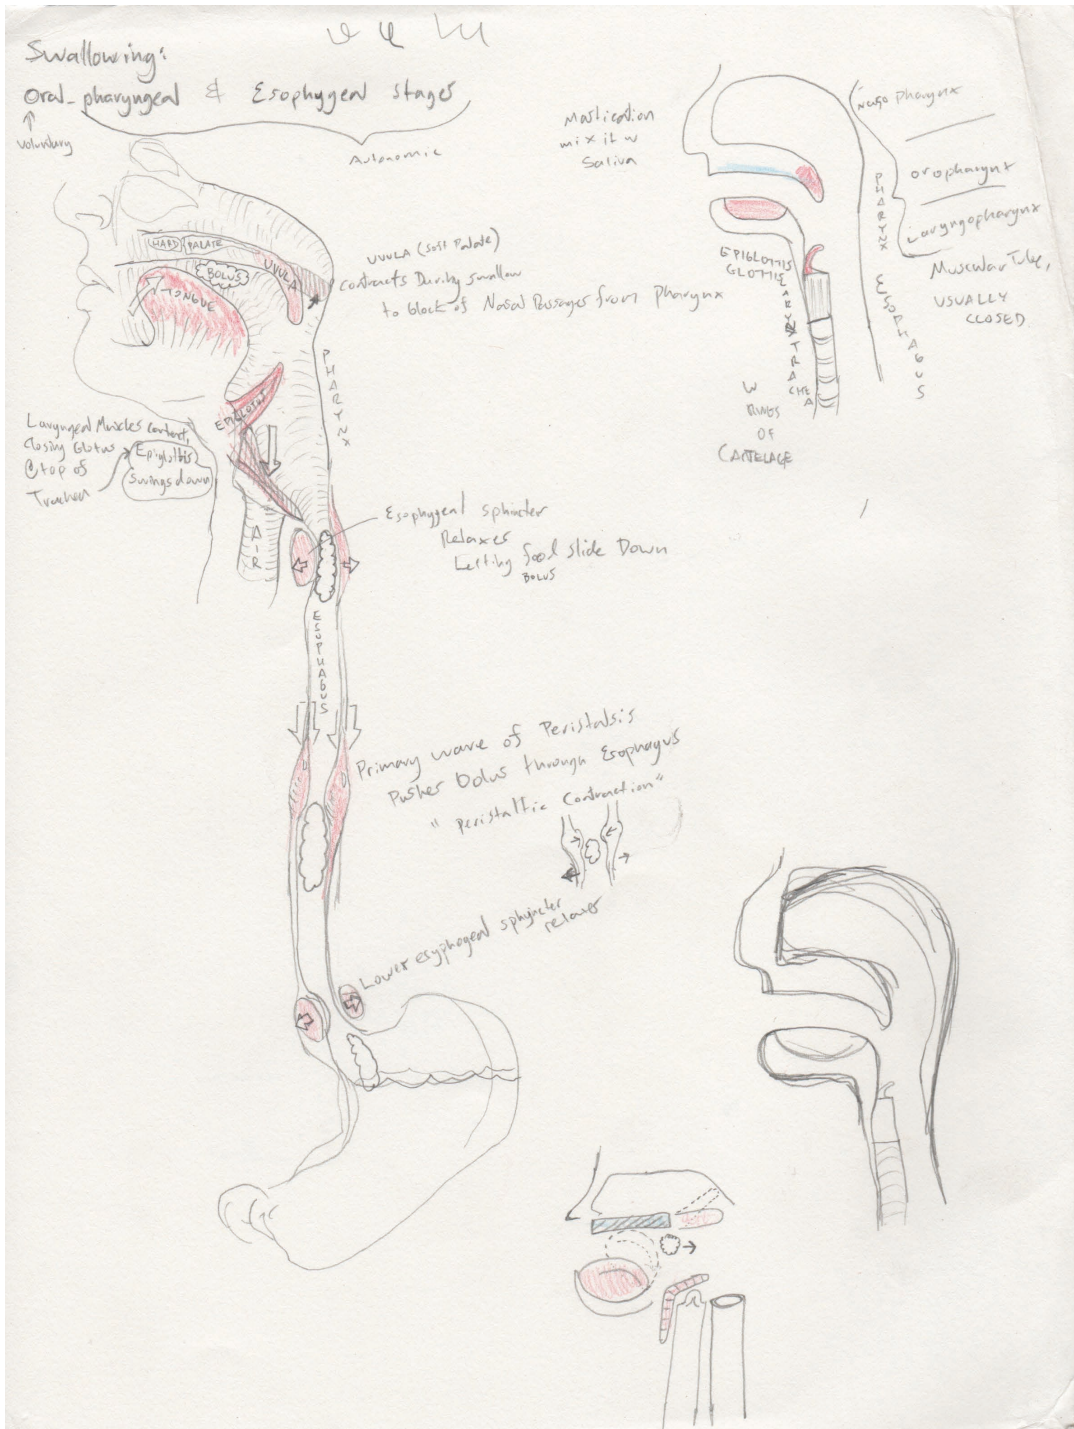 Swallowing:
Oral-pharyngeal & Esophygeal stages
voluntary
Autonomic
HARD PALATE
BOLUS
UVULA
TONGUE
UVULA (soft Palate)
contracts During swallow
to block of Nasal Passages from Pharynx
PHARYNX
Laryngeal Muscles contract,
closing Glottus
@ top of
Trachea
Epiglottis
Swings down
AIR
Esophygeal sphincter
Relaxes
Letting food slide Down
BOLUS
ESOPHAGUS
Primary wave of Peristalsis
Pushes bolus through Esophagus
"Peristaltic Contraction"
Lower esyphogeal sphyincter
relaxes
Mastication
mix it w
Saliva
Naso pharynx
oropharynx
Laryngopharynx
PHARYNX
ESOPHAGUS
Muscular Tube,
USUALLY
CLOSED
EPIGLOTTIS
GLOTTIS
LARYNX
TRACHEA
W
RINGS
OF
CARTELAGE